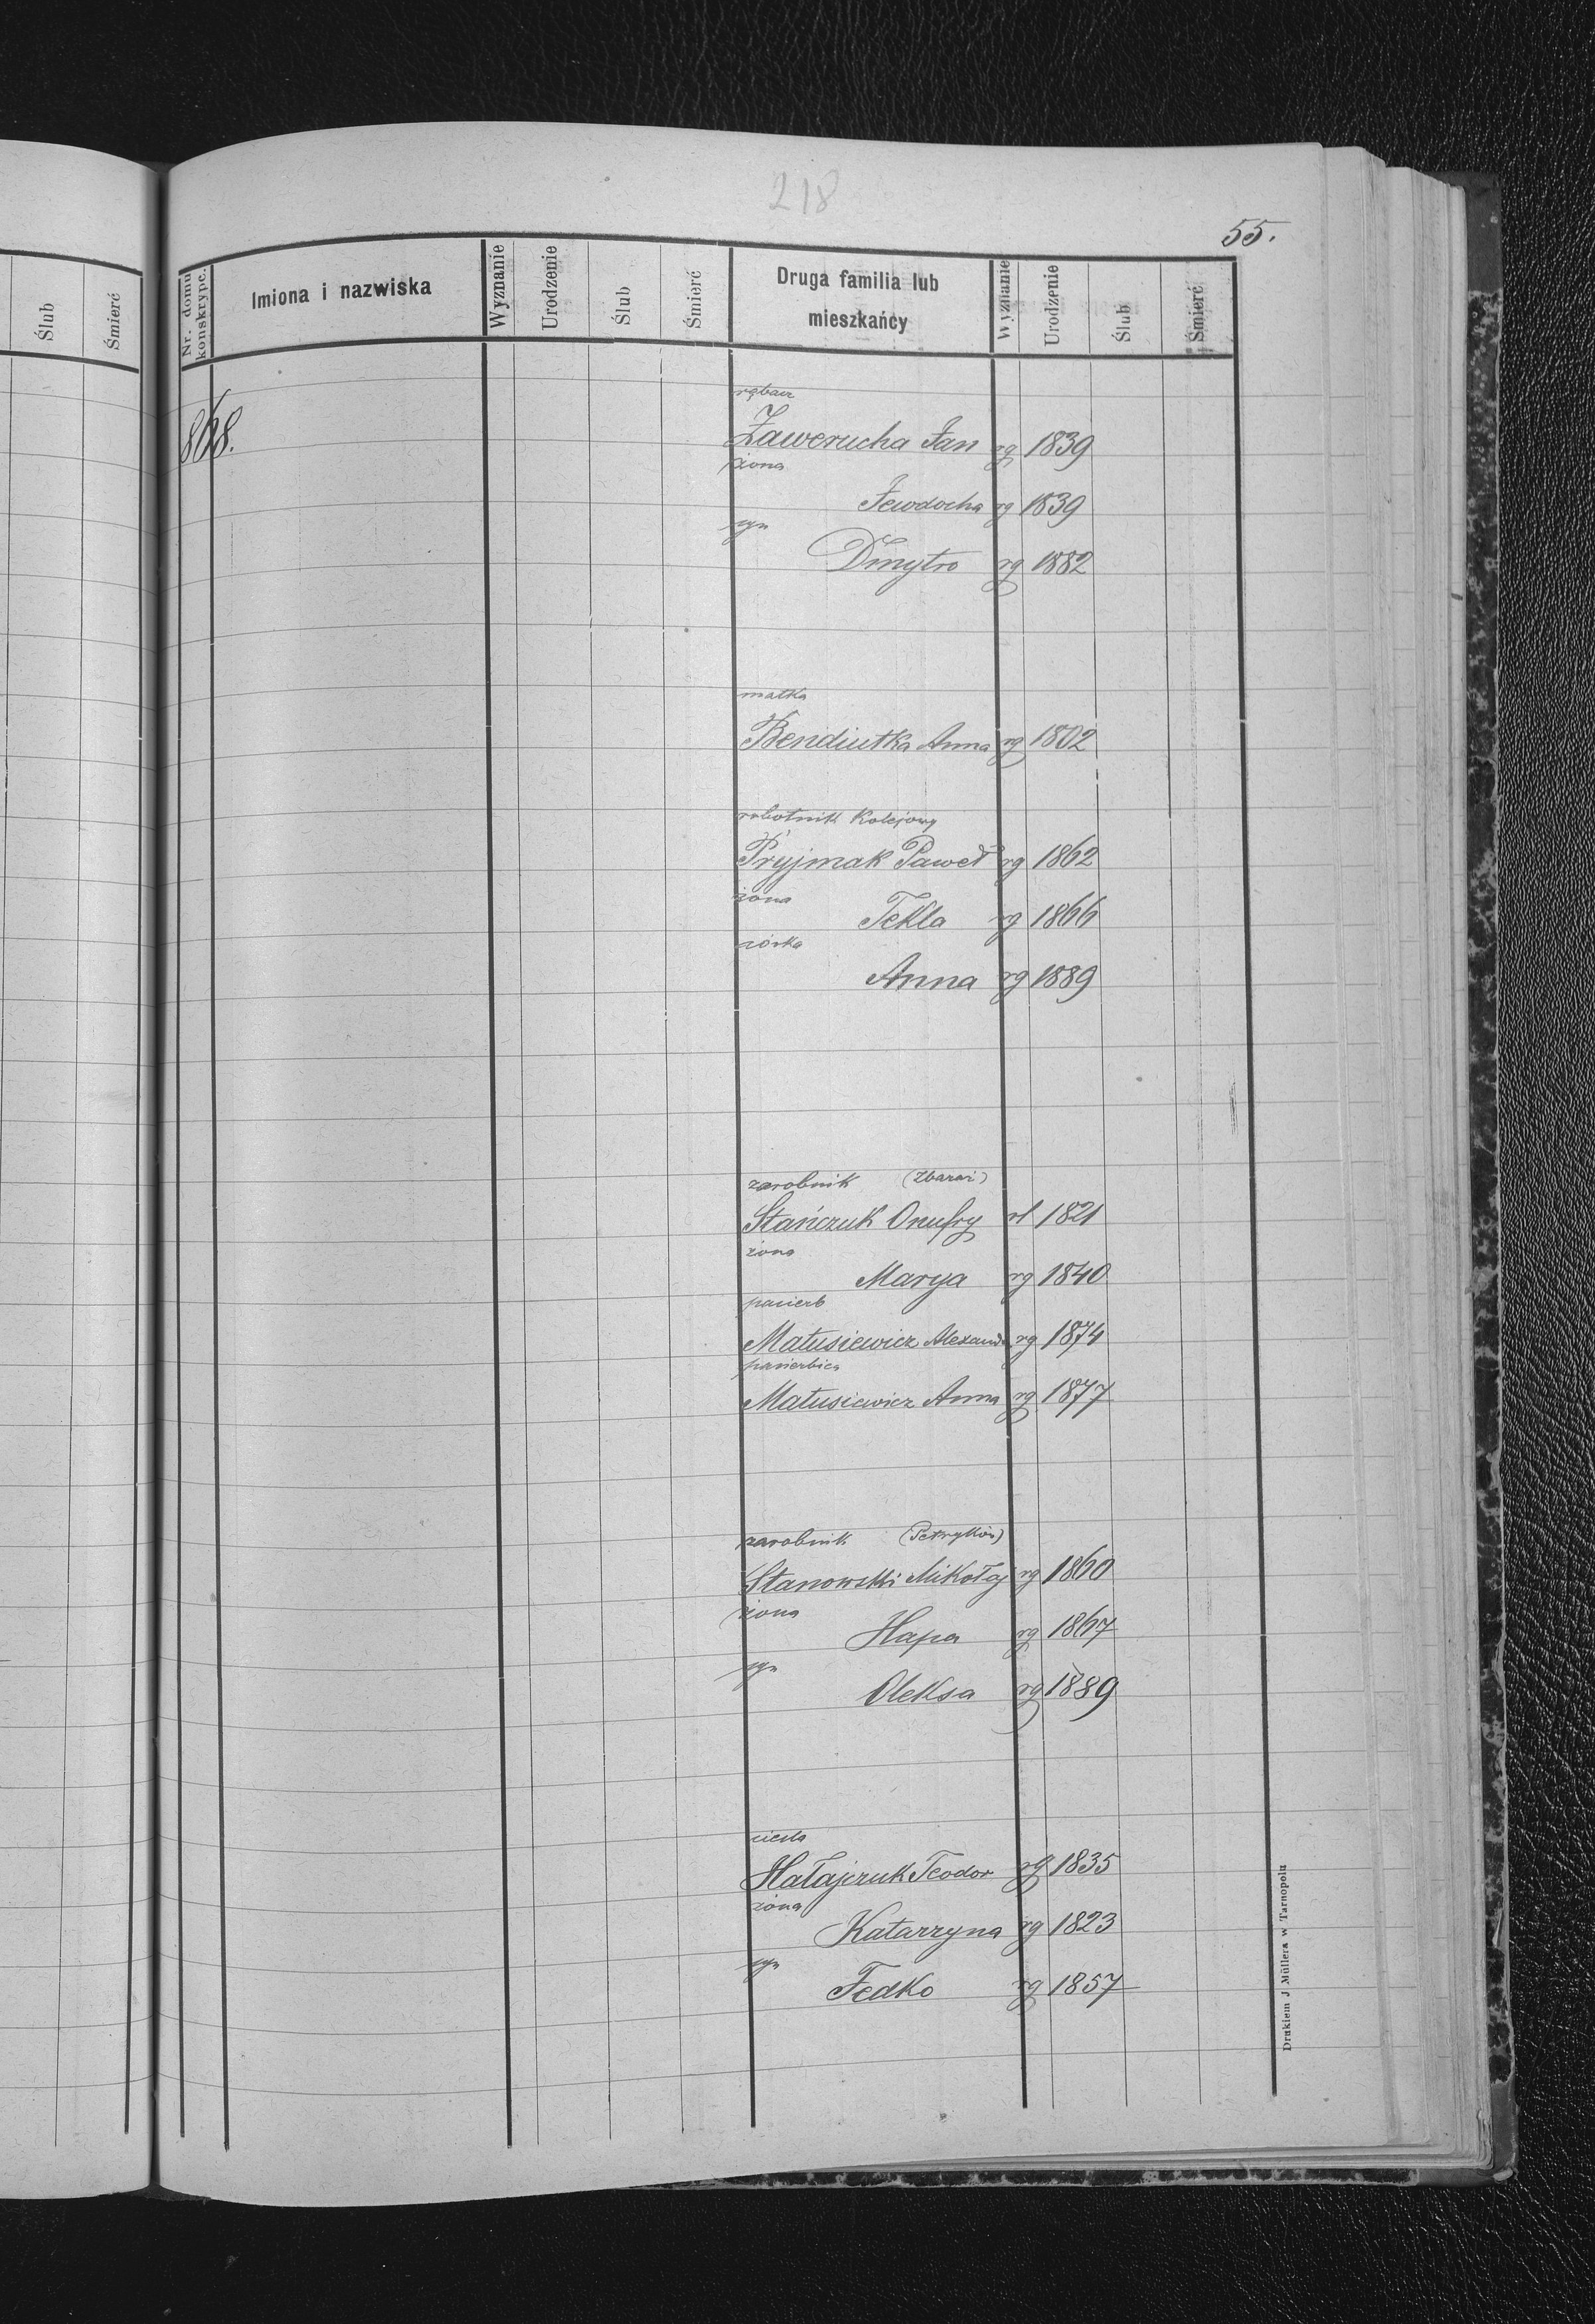 218
55.
Ślub
Śmierć
Nr. domu konskrypc.
Imiona i nazwiska
Wyznanie
Urodzenie
Ślub
Śmierć
Druga familia lub
mieszkańcy
Wyznanie
Urodzenie
Ślub
Śmierć
868.
rębacz
Zawerucha Jan rg 1839
żona
Jewdocha rg 1839
syn
Dmytro rg 1882
matka
Bendiutka Anna rg 1802
robotnik kolejowy
Pryjmak Paweł rg 1862
żona
Tekla rg 1866
córka
Anna rg 1889
zarobnik (Zbaraż)
Stańczuk Onufry rł 1821
żona
Marya rg 1840
pasierb
Matusiewicz Alexand. rg 1874
pasierbica
Matusiewicz Anna rg 1877
zarobnik (Petryków)
Stanowski Mikołaj rg 1860
żona
Hapa rg 1867
syn
Oleksa rg 1889
cieśla
Hałajczuk Teodor rg 1835
żona
Katarzyna rg 1823
syn
Fedko rg 1857
Drukiem J Müllera w Tarnopolu